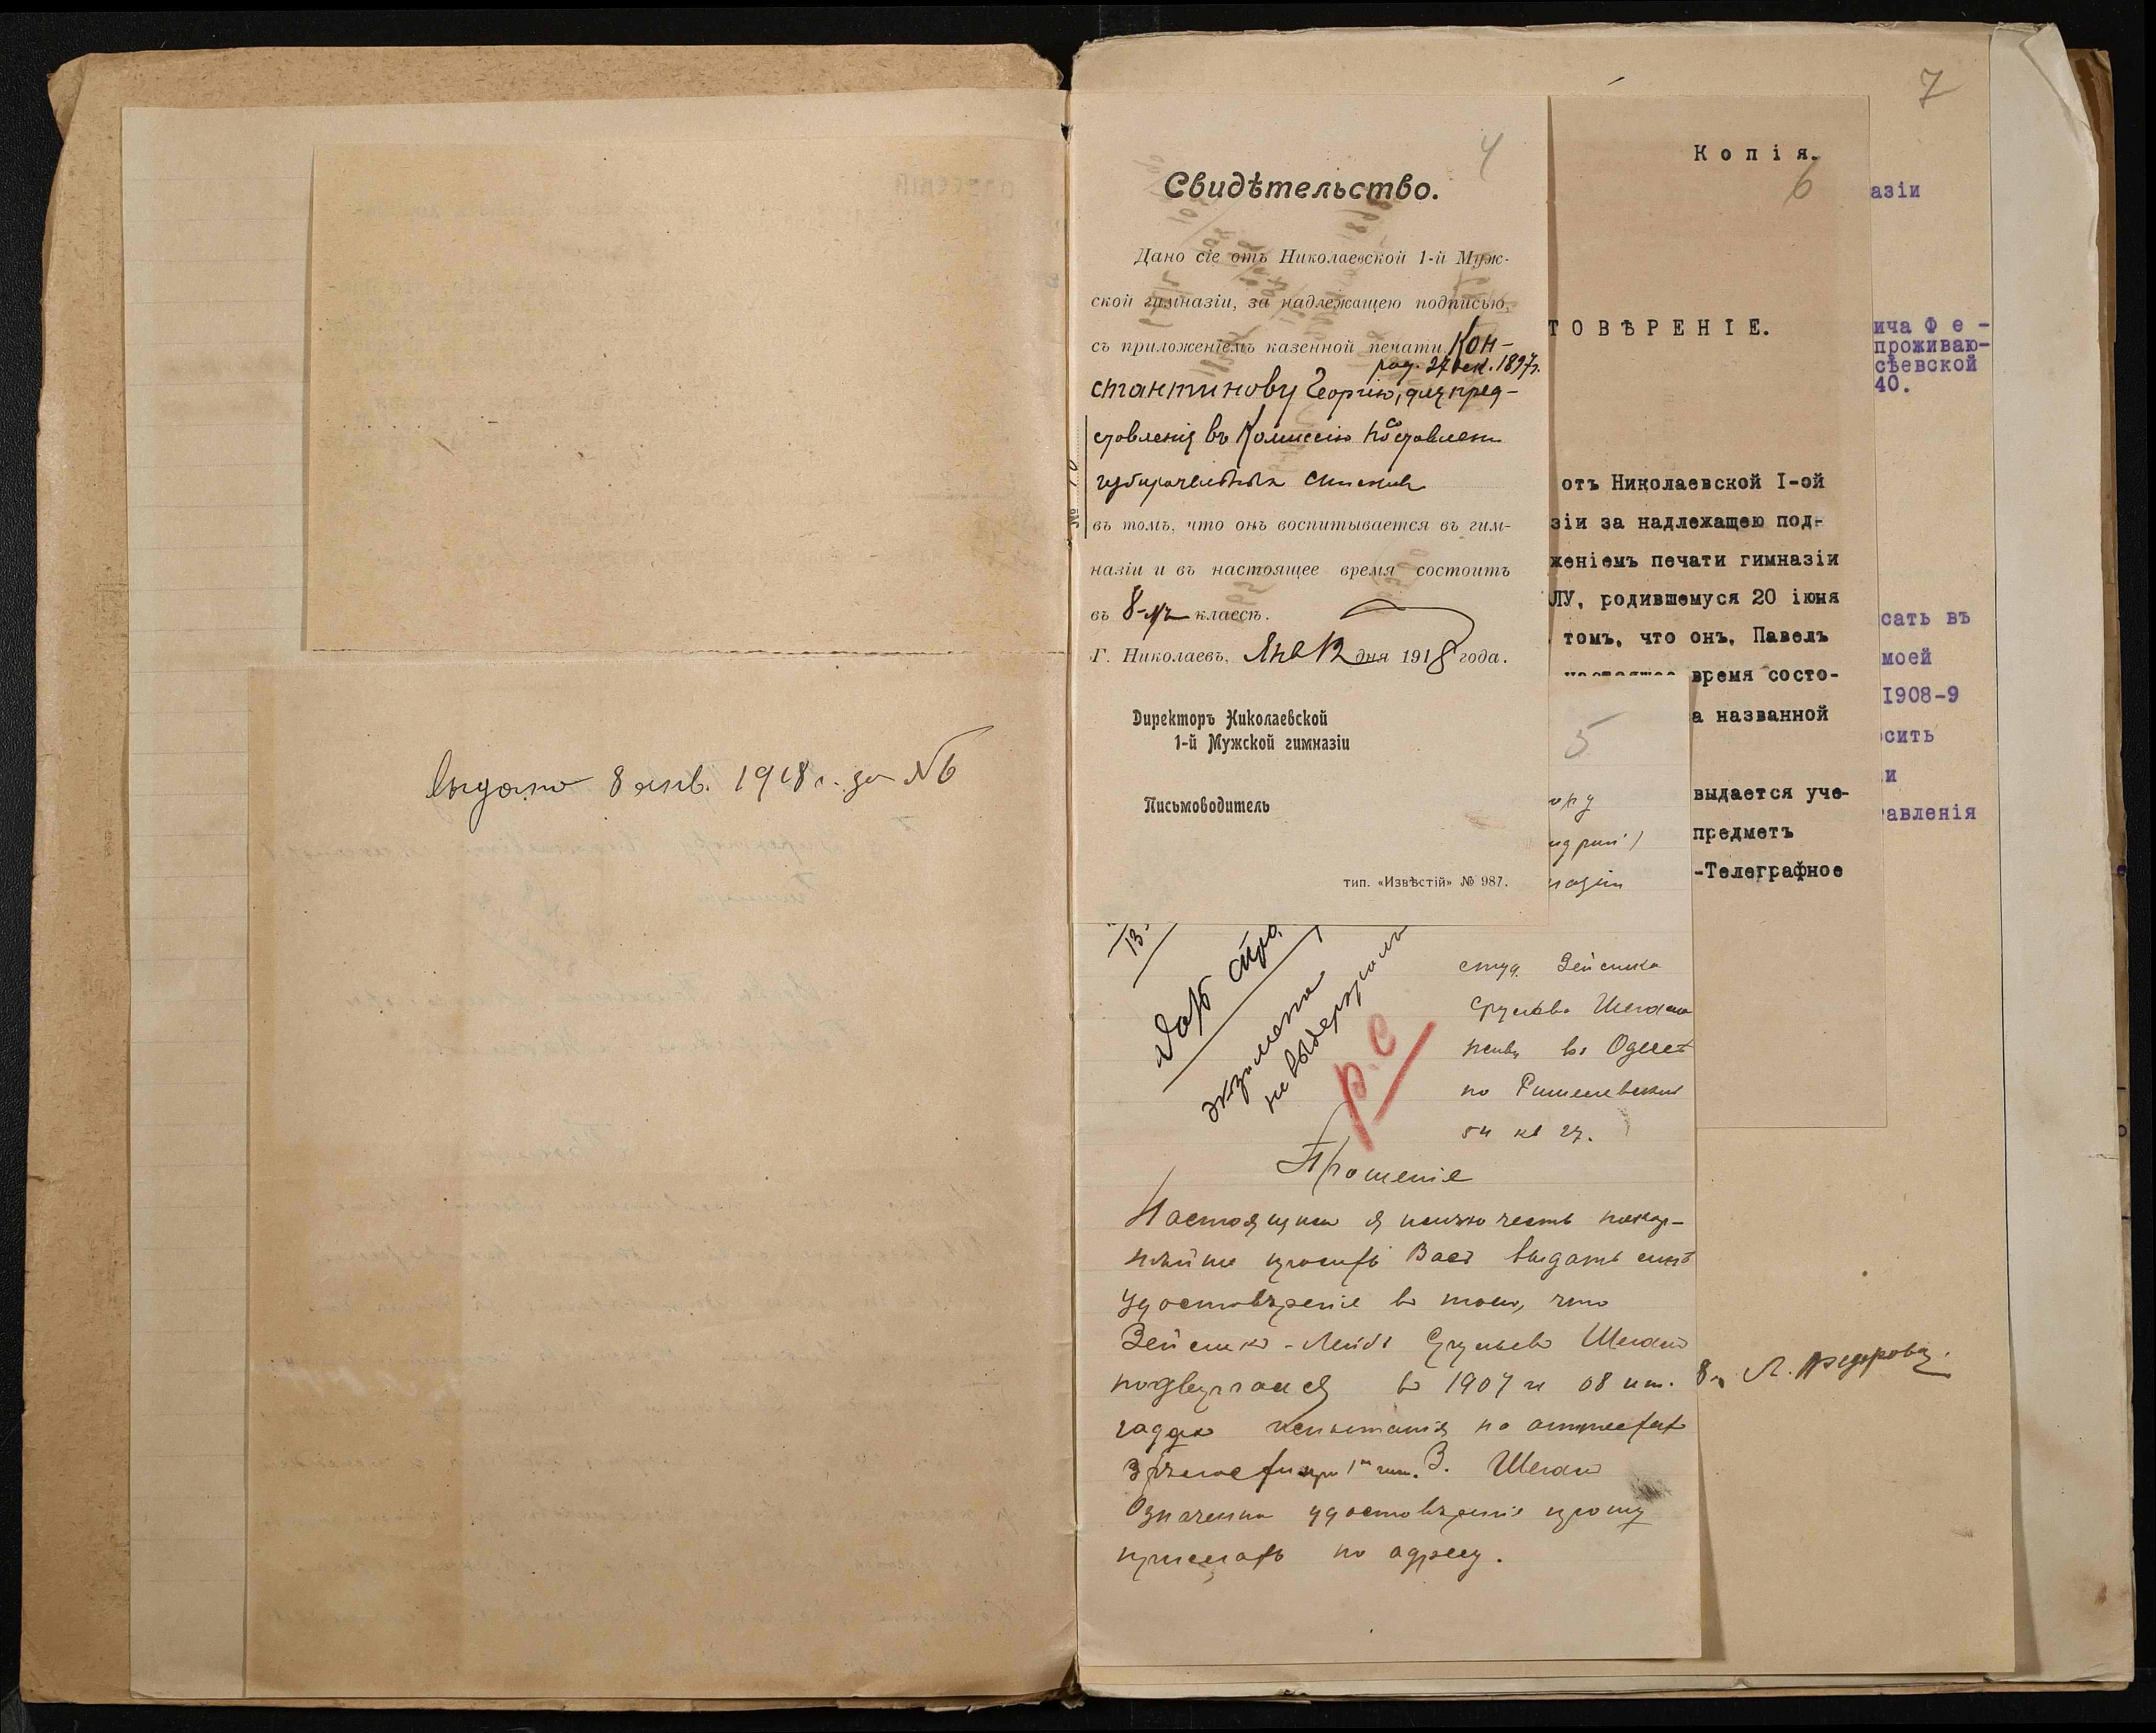 выдано 8 янв. 1918 г. за №6
4
Свидѣтельство.
Дано сіе отъ Николаевской 1-й Муж-
ской гимназіи, за надлежащею подписью,
съ приложеніемъ казенной печати Кон-
род. 27 дек. 1897г.
стантинову Георгію, для пред-
ставленія въ Комиссію по составлен
избирательныхъ списковъ
въ томъ, что онъ воспитывается въ гим-
назіи и въ настоящее время состоитъ
въ 8-мъ классѣ.
Г. Николаевъ, Янв 12 дня 1918 года.
Директоръ Николаевской
1-й Мужской гимназіи
Письмоводитель
тип. «Извѣстій» № 987.
№
Копія.
6
ТОВѢРЕНІЕ.
отъ Николаевской I-ой
зіи за надлежащею под-
женіемъ печати гимназіи
ЛУ, родившемуся 20 іюня
томъ, что онъ, Павелъ
настоящее время состо-
а названной
выдается уче-
предметъ
-Телеграфное
7
азіи
ича Ф е -
проживаю-
сѣевской
40.
сать въ
моей
I908-9
осить
и
авленія
Л. Федоровъ.
5
13
экзамена
не выдержалъ
Р.С
студ. Зейлика
Сруль
въ Одессѣ
по Ришельевской
54 кв 27.
Прошеніе
Настоящимъ я имѣю честь покор-
нѣйше просить Васъ выдать мнѣ
удостовѣреніе въ томъ, что
подвергался въ 1907 и 08 уч.
годахъ испытанія на аттестат
зрѣлости при 1й гим. З.
Означенное удостовѣреніе прошу
прислать по адресу.